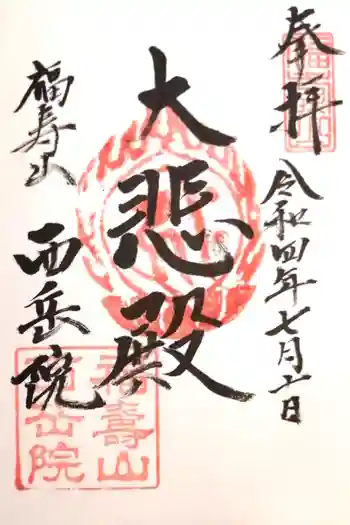 奉拝
令和四年七月六日
大悲殿
福寿山
西岳院
福壽山
西岳院